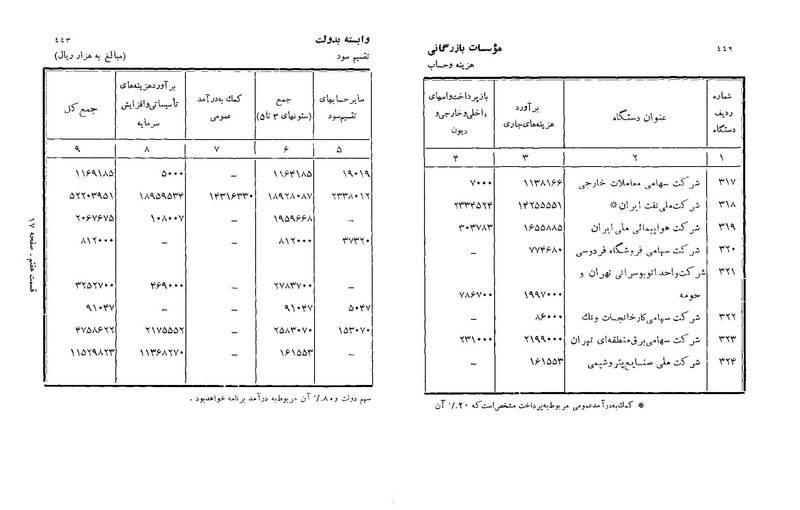 ۴۴۲
مؤسسات بازرگانی
هزینه و حساب
شماره ردیف دستگاه | عنوان دستگاه | برآورد هزینه‌های جاری | بازپرداخت وامهای داخلی و خارجی و دیون
۱ | ۲ | ۳ | ۴
۳۱۷ | شرکت سهامی معاملات خارجی | ۱۱۳۸۱۶۶ | ۷۰۰۰
۳۱۸ | شرکت ملی نفت ایران* | ۱۴۲۵۵۵۵۱ | ۲۳۳۴۵۲۴
۳۱۹ | شرکت هواپیمائی ملی ایران | ۱۶۵۵۸۸۵ | ۳۰۳۷۸۳
۳۲۰ | شرکت سهامی فروشگاه فردوسی | ۷۷۴۶۸۰ | –
۳۲۱ | شرکت واحد اتوبوسرانی تهران و
حومه | ۱۹۹۷۰۰۰ | ۷۸۶۷۰۰
۳۲۲ | شرکت سهامی کارخانجات ونک | ۸۶۰۰۰ | –
۳۲۳ | شرکت سهامی برق منطقه‌ای تهران | ۲۱۹۹۰۰۰ | ۲۳۱۰۰۰
۳۲۴ | شرکت ملی صنایع پتروشیمی | ۱۶۱۵۵۳ | –
* کمک به درآمد عمومی مربوط به پرداخت مشخص است که ۲۰٪ آن
وابسته بدولت
۴۴۳
تقسیم سود
(مبالغ به هزار ریال)
سایر حسابهای تقسیم سود | جمع (ستونهای ۳ تا ۵) | کمک به درآمد عمومی | برآورد هزینه‌های تأسیساتی و افزایش سرمایه | جمع کل
۵ | ۶ | ۷ | ۸ | ۹
۱۹۰۱۹ | ۱۱۶۴۱۸۵ | – | ۵۰۰۰ | ۱۱۶۹۱۸۵
۲۳۳۸۰۱۲ | ۱۸۹۲۸۰۸۷ | ۱۴۳۱۶۳۳۰ | ۱۸۹۵۹۵۳۴ | ۵۲۲۰۳۹۵۱
– | ۱۹۵۹۶۶۸ | – | ۱۰۸۰۰۷ | ۲۰۶۷۶۷۵
۳۷۳۲۰ | ۸۱۲۰۰۰ | – | – | ۸۱۲۰۰۰
– | ۲۷۸۳۷۰۰ | – | ۴۶۹۰۰۰ | ۳۲۵۲۷۰۰
۵۰۴۷ | ۹۱۰۴۷ | – | – | ۹۱۰۴۷
۱۵۳۰۷۰ | ۲۵۸۳۰۷۰ | – | ۲۱۷۵۵۵۲ | ۴۷۵۸۶۲۲
– | ۱۶۱۵۵۳ | – | ۱۱۳۶۸۲۷۰ | ۱۱۵۲۹۸۲۳
سهم دولت و ۸۰٪ آن مربوط به درآمد برنامه خواهد بود .
قسمت هفتم - صفحه ۱۷